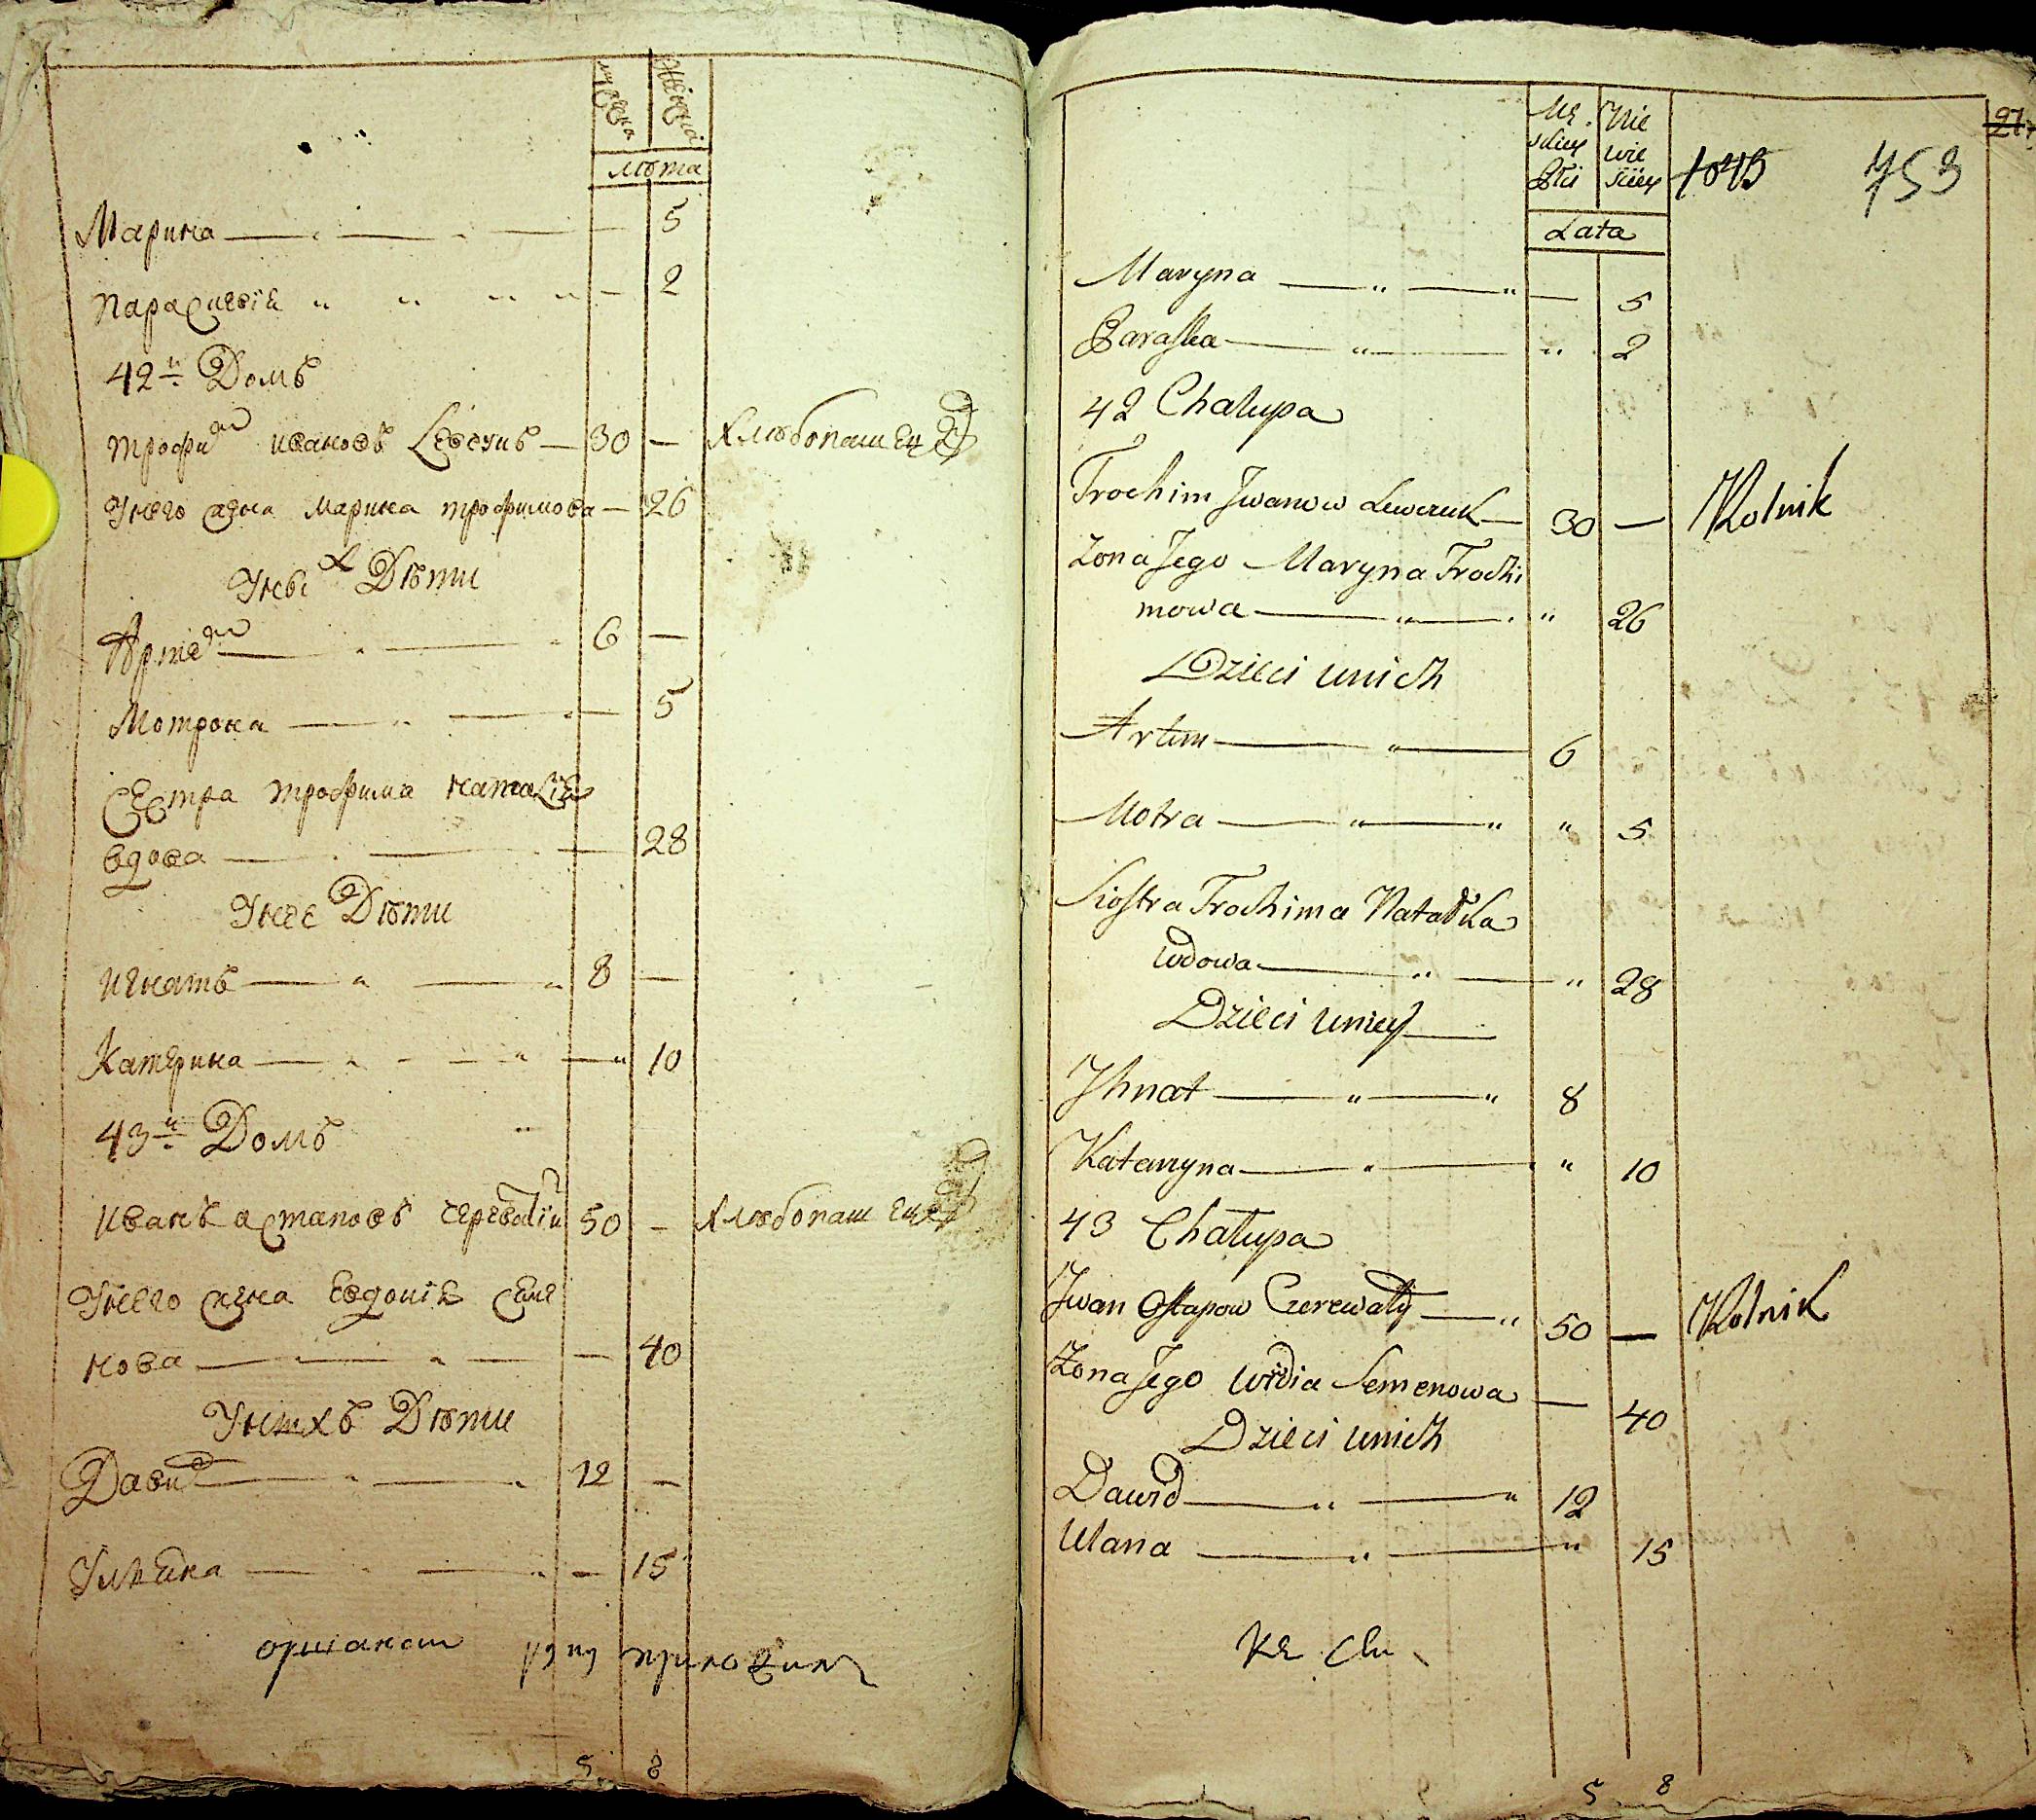 лѣта
Марина 5
Параскевія 2
42й Домъ
Трофим Ивановъ Левчукъ 30 — Хлѣбопашец
У него жена Марина Трофимова — 26
У них Дѣти
Артем 6 —
Мотрона 5
Сестра Трофима Наталія
вдова 28
У нее Дѣти
Игнатъ 8 —
Катерина 10
43й Домъ
Иванъ Астаповъ Череватій 50 — Хлѣбопашец
У него жена Евдокія Семе
нова 40
У нихъ Дѣти
Давид 12 —
Ульяна 15
5 8
27
Mę Nie
skiey wie
Płci sciey 753
Lata
Maryna 5
Paraska 2
42 Chałupa
Trochim Jwanow Lewczuk 30 — Rolnik
Zona Jego Maryna Trochi
mowa 26
Dzieci unich
Artem 6
Motra 5
Siostra Trochima Natalka
wdowa 28
Dzieci uniey
Jhnat 8
Kataryna 10
43 Chałupa
Jwan Ostapow Czerewaty 50 — Rolnik
Zona Jego Semenowa — 40
Dzieci unich
Dawid 12
Ulana 15
5 8